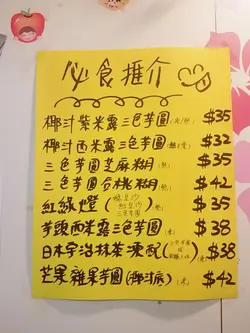 必食推介
椰汁紫米露三色芋圓(凍/熱) $35
椰汁西米露三色芋圓 $32
三色芋圓芝麻糊(熱) $35
三色芋圓合桃糊(熱) $42
紅綠燈(綠豆沙 紅豆沙 三色芋圓)(熱) $35
芋頭西米露三色芋圓(凍) $38
日本宇治抹茶凍配(三色芋圓) $38
芒果雜果芋圓(椰汁底)(凍) $42